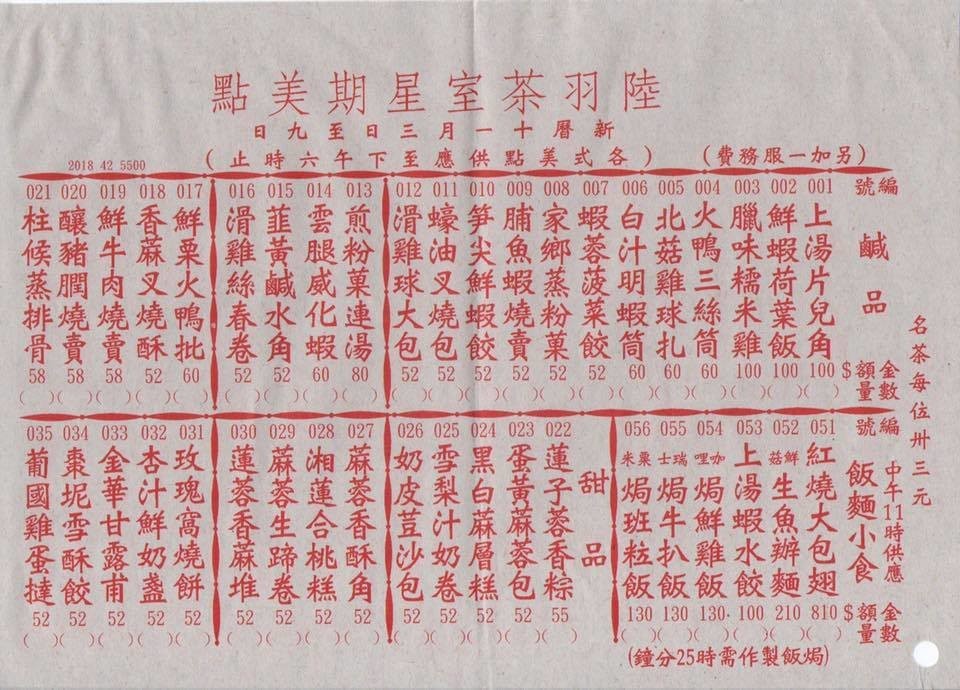 陸羽茶室星期美點
新曆十一月三日至九日
(各式美點供應至下午六時止)
(另加一服務費)
2018 42 5500
名茶每位卅三元
編號
鹹品
金額 $
數量
001 上湯片兒角 100 ( )
002 鮮蝦荷葉飯 100 ( )
003 臘味糯米雞 100 ( )
004 火鴨三絲筒 60 ( )
005 北菇雞球扎 60 ( )
006 白汁明蝦筒 60 ( )
007 蝦蓉菠菜餃 52 ( )
008 家鄉蒸粉菓 52 ( )
009 脯魚蝦燒賣 52 ( )
010 笋尖鮮蝦餃 52 ( )
011 蠔油叉燒包 52 ( )
012 滑雞球大包 52 ( )
013 煎粉菓連湯 80 ( )
014 雲腿威化蝦 60 ( )
015 韮黃鹹水角 52 ( )
016 滑雞絲春卷 52 ( )
017 鮮栗火鴨批 60 ( )
018 香蔴叉燒酥 52 ( )
019 鮮牛肉燒賣 58 ( )
020 釀豬膶燒賣 58 ( )
021 柱候蒸排骨 58 ( )
中午11時供應
編號
飯麵小食
金額 $
數量
051 紅燒大包翅 810 ( )
052 鮮菇生魚辦麵 210 ( )
053 上湯蝦水餃 100 ( )
054 咖哩焗鮮雞飯 130 ( )
055 瑞士焗牛扒飯 130 ( )
056 粟米焗班粒飯 130 ( )
(焗飯製作需時25分鐘)
甜品
022 蓮子蓉香粽 55 ( )
023 蛋黃蔴蓉包 52 ( )
024 黑白蔴層糕 52 ( )
025 雪梨汁奶卷 52 ( )
026 奶皮荳沙包 52 ( )
027 蔴蓉香酥角 52 ( )
028 湘蓮合桃糕 52 ( )
029 蔴蓉生蹄卷 52 ( )
030 蓮蓉香蔴堆 52 ( )
031 玫瑰窩燒餅 52 ( )
032 杏汁鮮奶盞 52 ( )
033 金華甘露甫 52 ( )
034 棗坭雪酥餃 52 ( )
035 葡國雞蛋撻 52 ( )